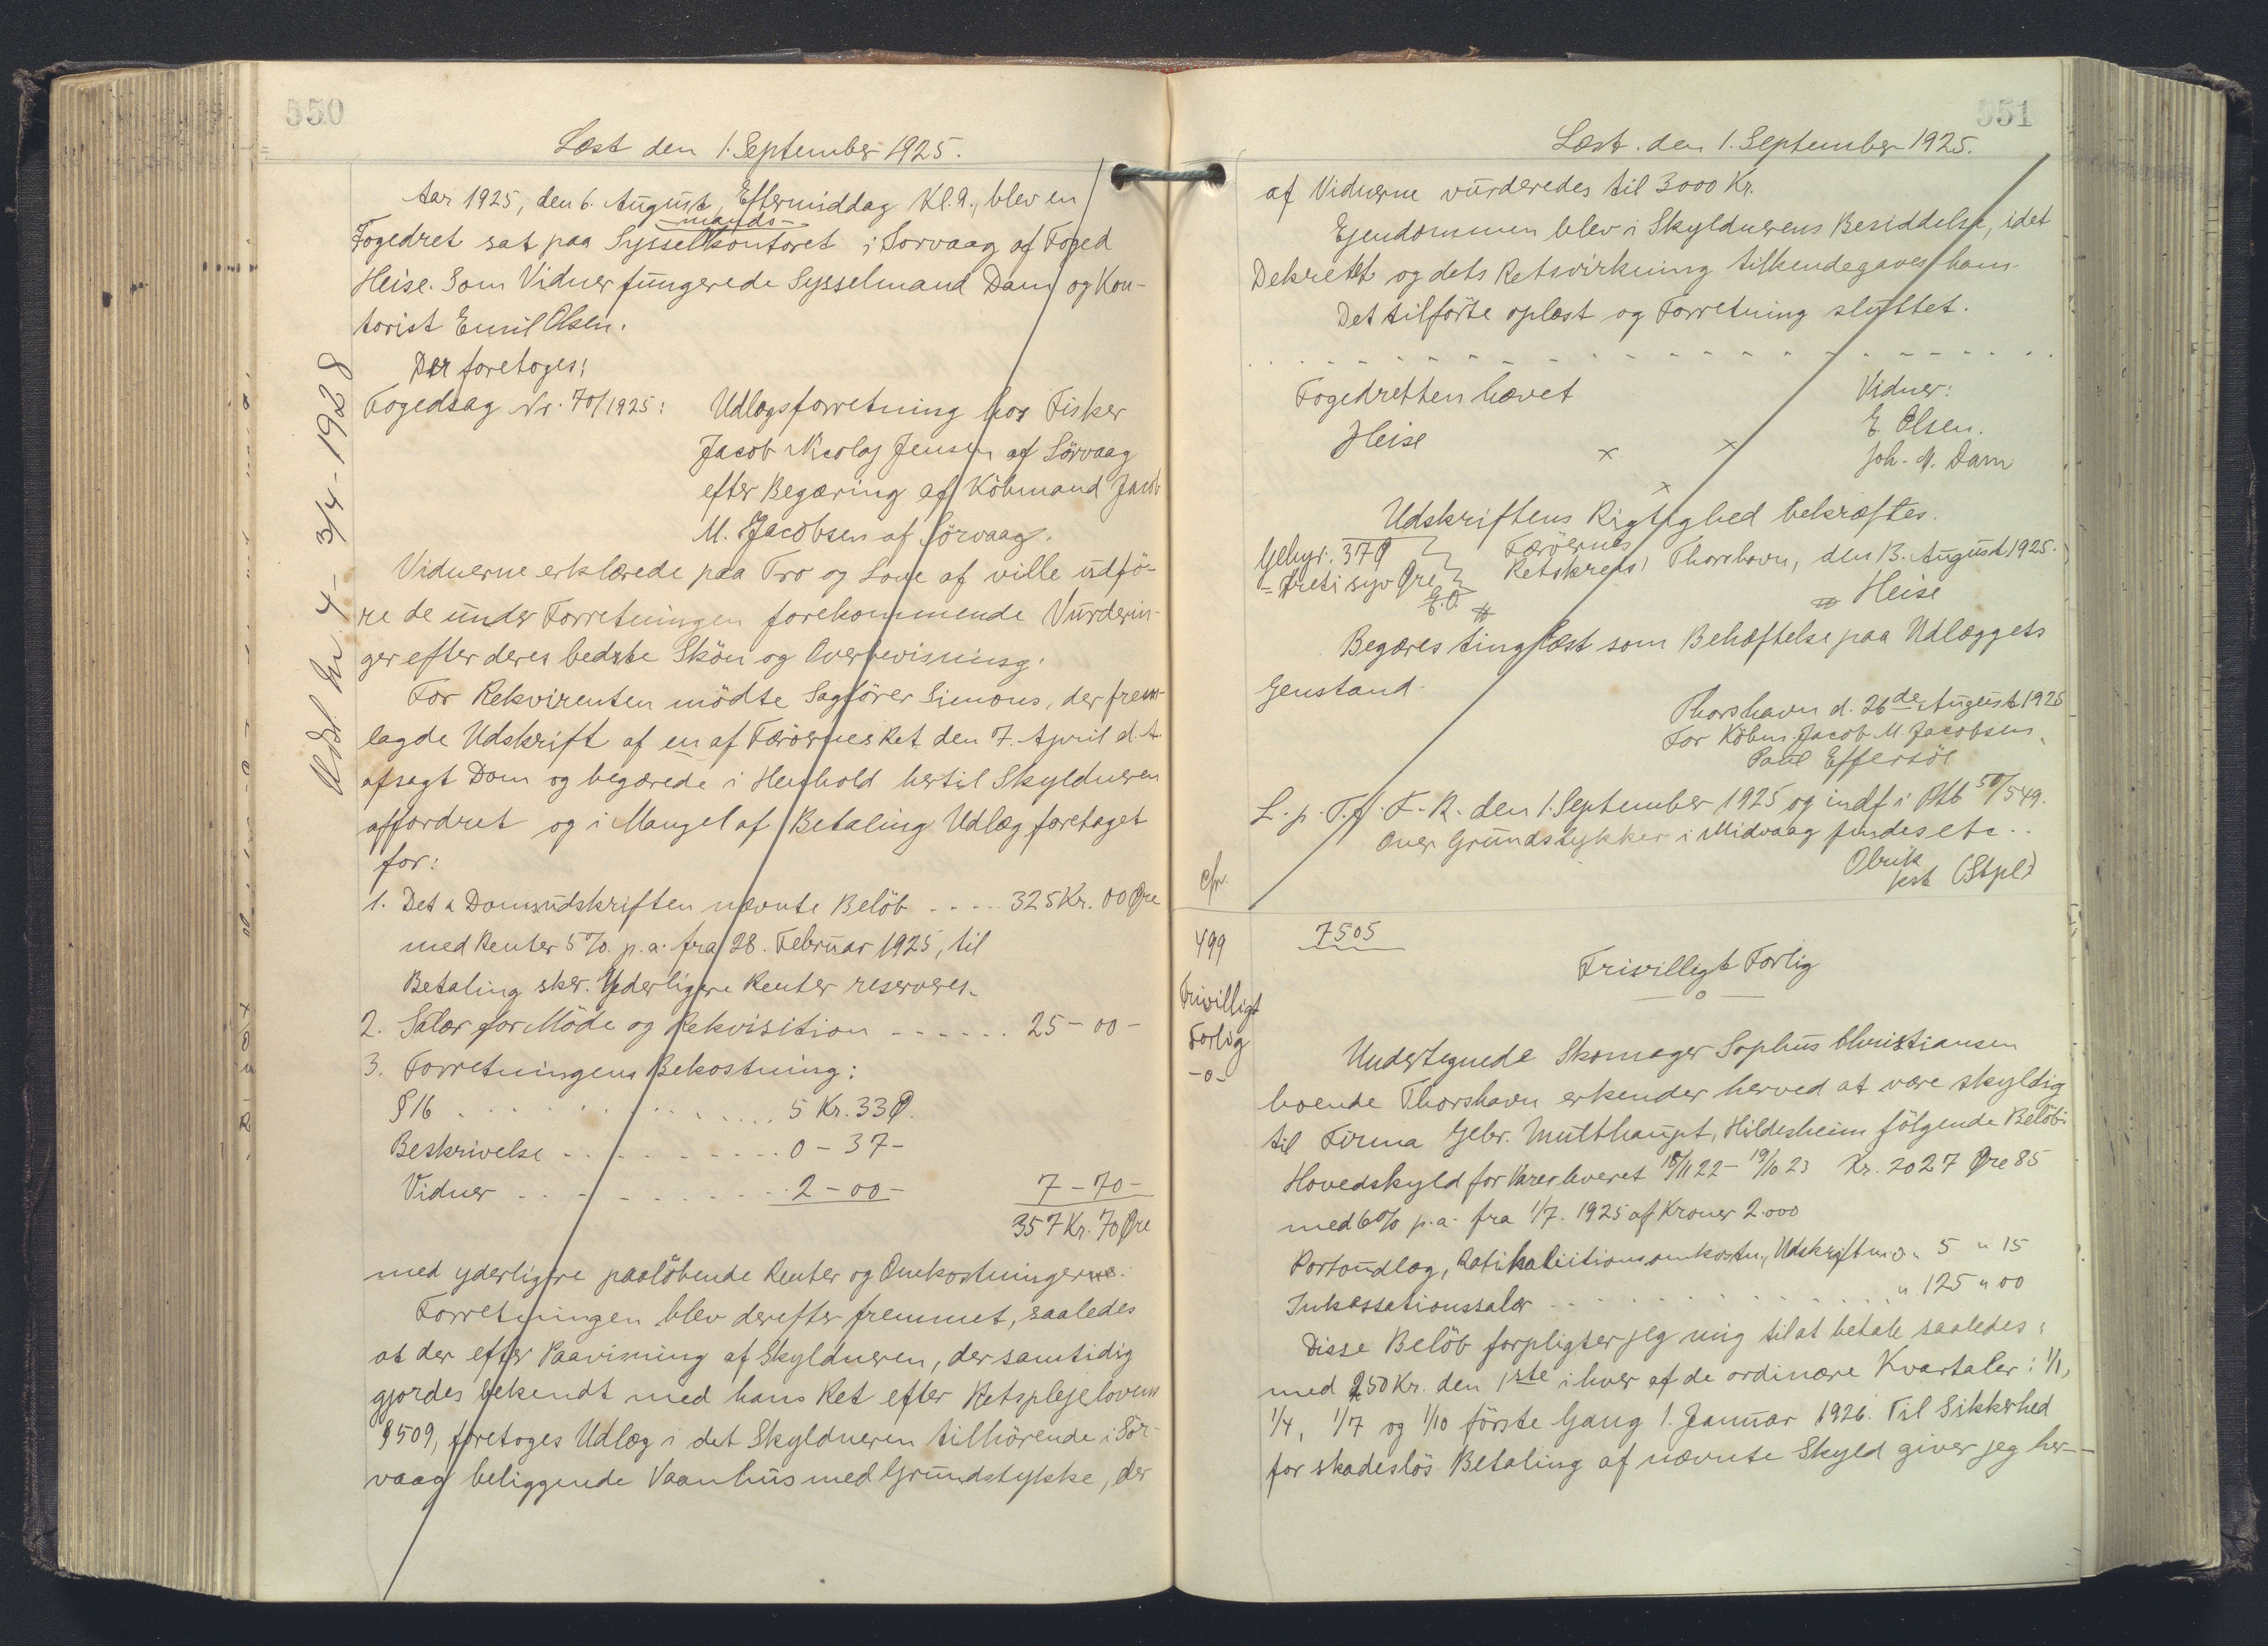 550
Læst den 1. September 1925.
Aar 1925, den 6. August, Eftermiddag Kl. 9., blev en
Fogedret sat paa Sysselmandskontoret i Sorvaag af Foged
Heise. Som Vidner fungerede Sysselmand Dam og Kon-
torist Emil Olsen.
Der foretoges:
Fogedsag Nr. 70/1925: Udlægsforretning hos Fisker
Jacob Nicolaj Jensen af Sörvaag
efter Begæring af Köbmand Jacob
M. Jacobsen af Sörvaag.
Vidnerne erklærede paa Tro og Love af ville udfö-
re de under Forretningen forekommende Vurderin-
ger efter deres bedste Skön og Overbevisning.
For Rekvirenten mödte Sagförer Simons, der frem-
lagde Udskrift af en af Færöernes Ret den 7. April d. A.
afsagt Dom og begærede i Henhold hertil Skyldneren
affordret og i Mangel af Betaling Udlæg foretaget
for:
1. Det i Domsudskriften nævnte Belöb .... 325 Kr. 00 Øre
med Renter 5% p.a. fra 28. Februar 1925, til
Betaling sker. Yderligere Renter reserveres.
2. Salær for Möde og Rekvisition ...... 25 - 00 -
3. Forretningens Bekostning:
§ 16 ............ 5 Kr. 33 Ø.
Beskrivelse ......... 0 - 37 -
Vidner .......... 2 - 00 - 7 - 70 -
357 Kr. 70 Øre
med yderligere paalöbende Renter og Omkostninger.
Forretningen blev derefter fremmet, saaledes
at der efter Paavisning af Skyldneren, der samtidig
gjordes bekendt med hans Ret efter Retsplejelovens
§ 509, foretoges Udlæg i det Skyldneren tilhörende i Sör-
vaag beliggende Vaanhus med Grundstykke, der
3/4 - 1928
551
Læst. den 1. September 1925.
af Vidnerne vurderedes til 3000 Kr.
Ejendommen blev i Skyldnerens Besiddelse, idet
Dekretet og dets Retsvirkning tilkendegaves ham.
Det tilförte oplæst og Forretning sluttet.
Fogedretten hævet Vidner:
Heise E. Olsen.
Joh. M. Dam
Udskriftens Rigtighed bekræftes.
Gebyr: 37 Ø Færöernes
= Treti syv Øre Retskreds, Thorshavn, den 13. August 1925.
E.O. Heise
Begæres tinglæst som Behæftelse paa Udlæggets
Genstand.
Thorshavn d. 26de August 1925
For Köbm. Jacob M. Jacobsen.
Paul Effersöe
L. p. T. f. F. R. den 1. September 1925 og indf i Ptb 50/549.
Over Grundstykker i Midvaag findes etc..
Olrik
kst (Stpl)
499 7505
Frivilligt Forlig
Frivilligt
Forlig
-o-
Undertegnede Skomager Sophus Christiansen
boende Thorshavn erkender herved at være skyldig
til Firma Gebr. Mutthaupt, Hildesheim fölgende Belöb:
Hovedskyld for Varer leveret 18/11 22 - 19/10 23 Kr. 2027 Øre 85
med 6% p.a. fra 1/7. 1925 af Kroner 2.000
Portoudlæg, omkostn., Udskrift m.v. 5 " 15
Inkassationssalær ............ " 125 " 00
Disse Belöb forpligter jeg mig til at betale saaledes:
med 250 Kr. den 1ste i hver af de ordinære Kvartaler: 1/1,
1/4, 1/7 og 1/10 förste Gang 1. Januar 1926. Til Sikkerhed
for skadeslös Betaling af nævnte Skyld giver jeg her-